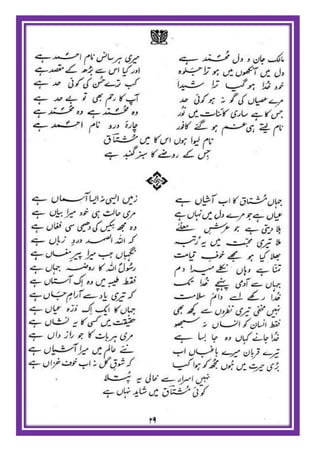 مالک جان و دل محمد ہے میری ہر سانس نام احمد ہے
دل میں آنکھوں میں ہو ترا جلوہ اور کیا اس سے بڑھ کے مقصد ہے
خود خدا ہو گیا ترا شیدا کب ترے حسن کی کوئی حد ہے
مرے عصیاں کی گو نہ ہو کوئی حد آپ کا رحم بھی تو بے حد ہے
جس کا ہے ساری کائنات میں نور وہ محمد ہے وہ محمد ہے
نام لیتے ہی غم ہو گئے کافور چارہ درد نام احمد ہے
نام لیوا ہوں اس کا میں مشتاق
جس کے روضے کا سبز گنبد ہے
جہاں مشتاق کا اب آشیاں ہے زمیں ایسی نہ ایسا آسماں ہے
عیاں ہے جو مرے دل میں نہاں ہے مری حالت ہی خود میرا بیاں ہے
ہلا دیتی ہے جو عرش معلے وہ مجھ بیکس کی دھیمی سی فغاں ہے
ملا تیری محبت میں یہ رتبہ کہ اللہ الصمد ورد زباں ہے
بھلا کیا ہو مجھے خوف قیامت نگہباں جب مرا پیر مغاں ہے
تمنا ہے وہاں نکلے مرا دم رسول اللہ کا روضہ جہاں ہے
جہاں سے آدمی پہنچے خدا تک فقط طیبہ میں وہ اک آستاں ہے
خدا رکھے اسے دائم سلامت کہ تیری یاد سے آرام جاں ہے
نہیں مخفی تیری نظروں سے کچھ بھی جہاں کا ایک اک ذرہ عیاں ہے
فقط انسان کو انساں نہ سمجھو حقیقت میں کسی کا یہ نشاں ہے
خدا جانے کہاں وہ جا بسا ہے مری ہر بات کا جو راز داں ہے
ترے قربان میرے باغباں اب نئے عالم میں میرا آشیاں ہے
بڑی حیرت میں ہوں مجھ کو ہوا کیا کہ شوق گل نہ اب خوف خزاں ہے
نہیں اسرار سے خالی یہ پتلا
کوئی مشتاق میں شاید نہاں ہے
۲۹